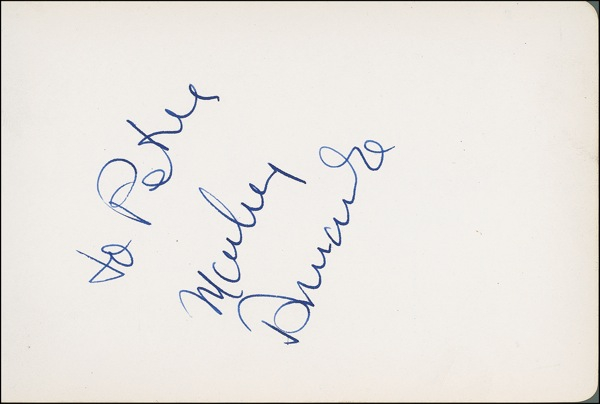 to Peter
Marlon
Brando